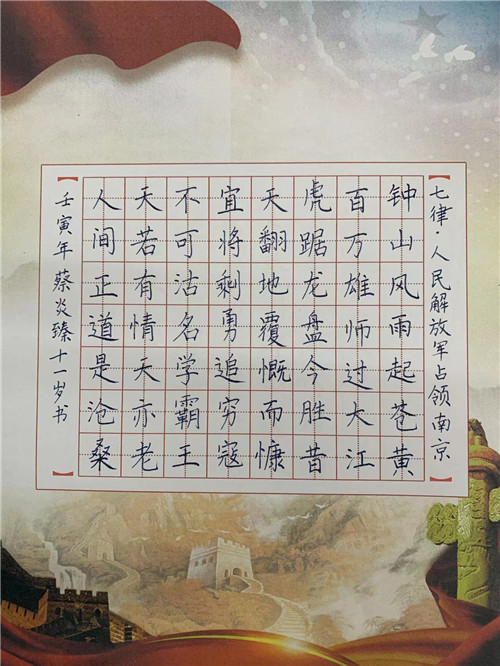 七律·人民解放军占领南京
钟山风雨起苍黄
百万雄师过大江
虎踞龙盘今胜昔
天翻地覆慨而慷
宜将剩勇追穷寇
不可沽名学霸王
天若有情天亦老
人间正道是沧桑
壬寅年 蔡炎臻 十一岁书